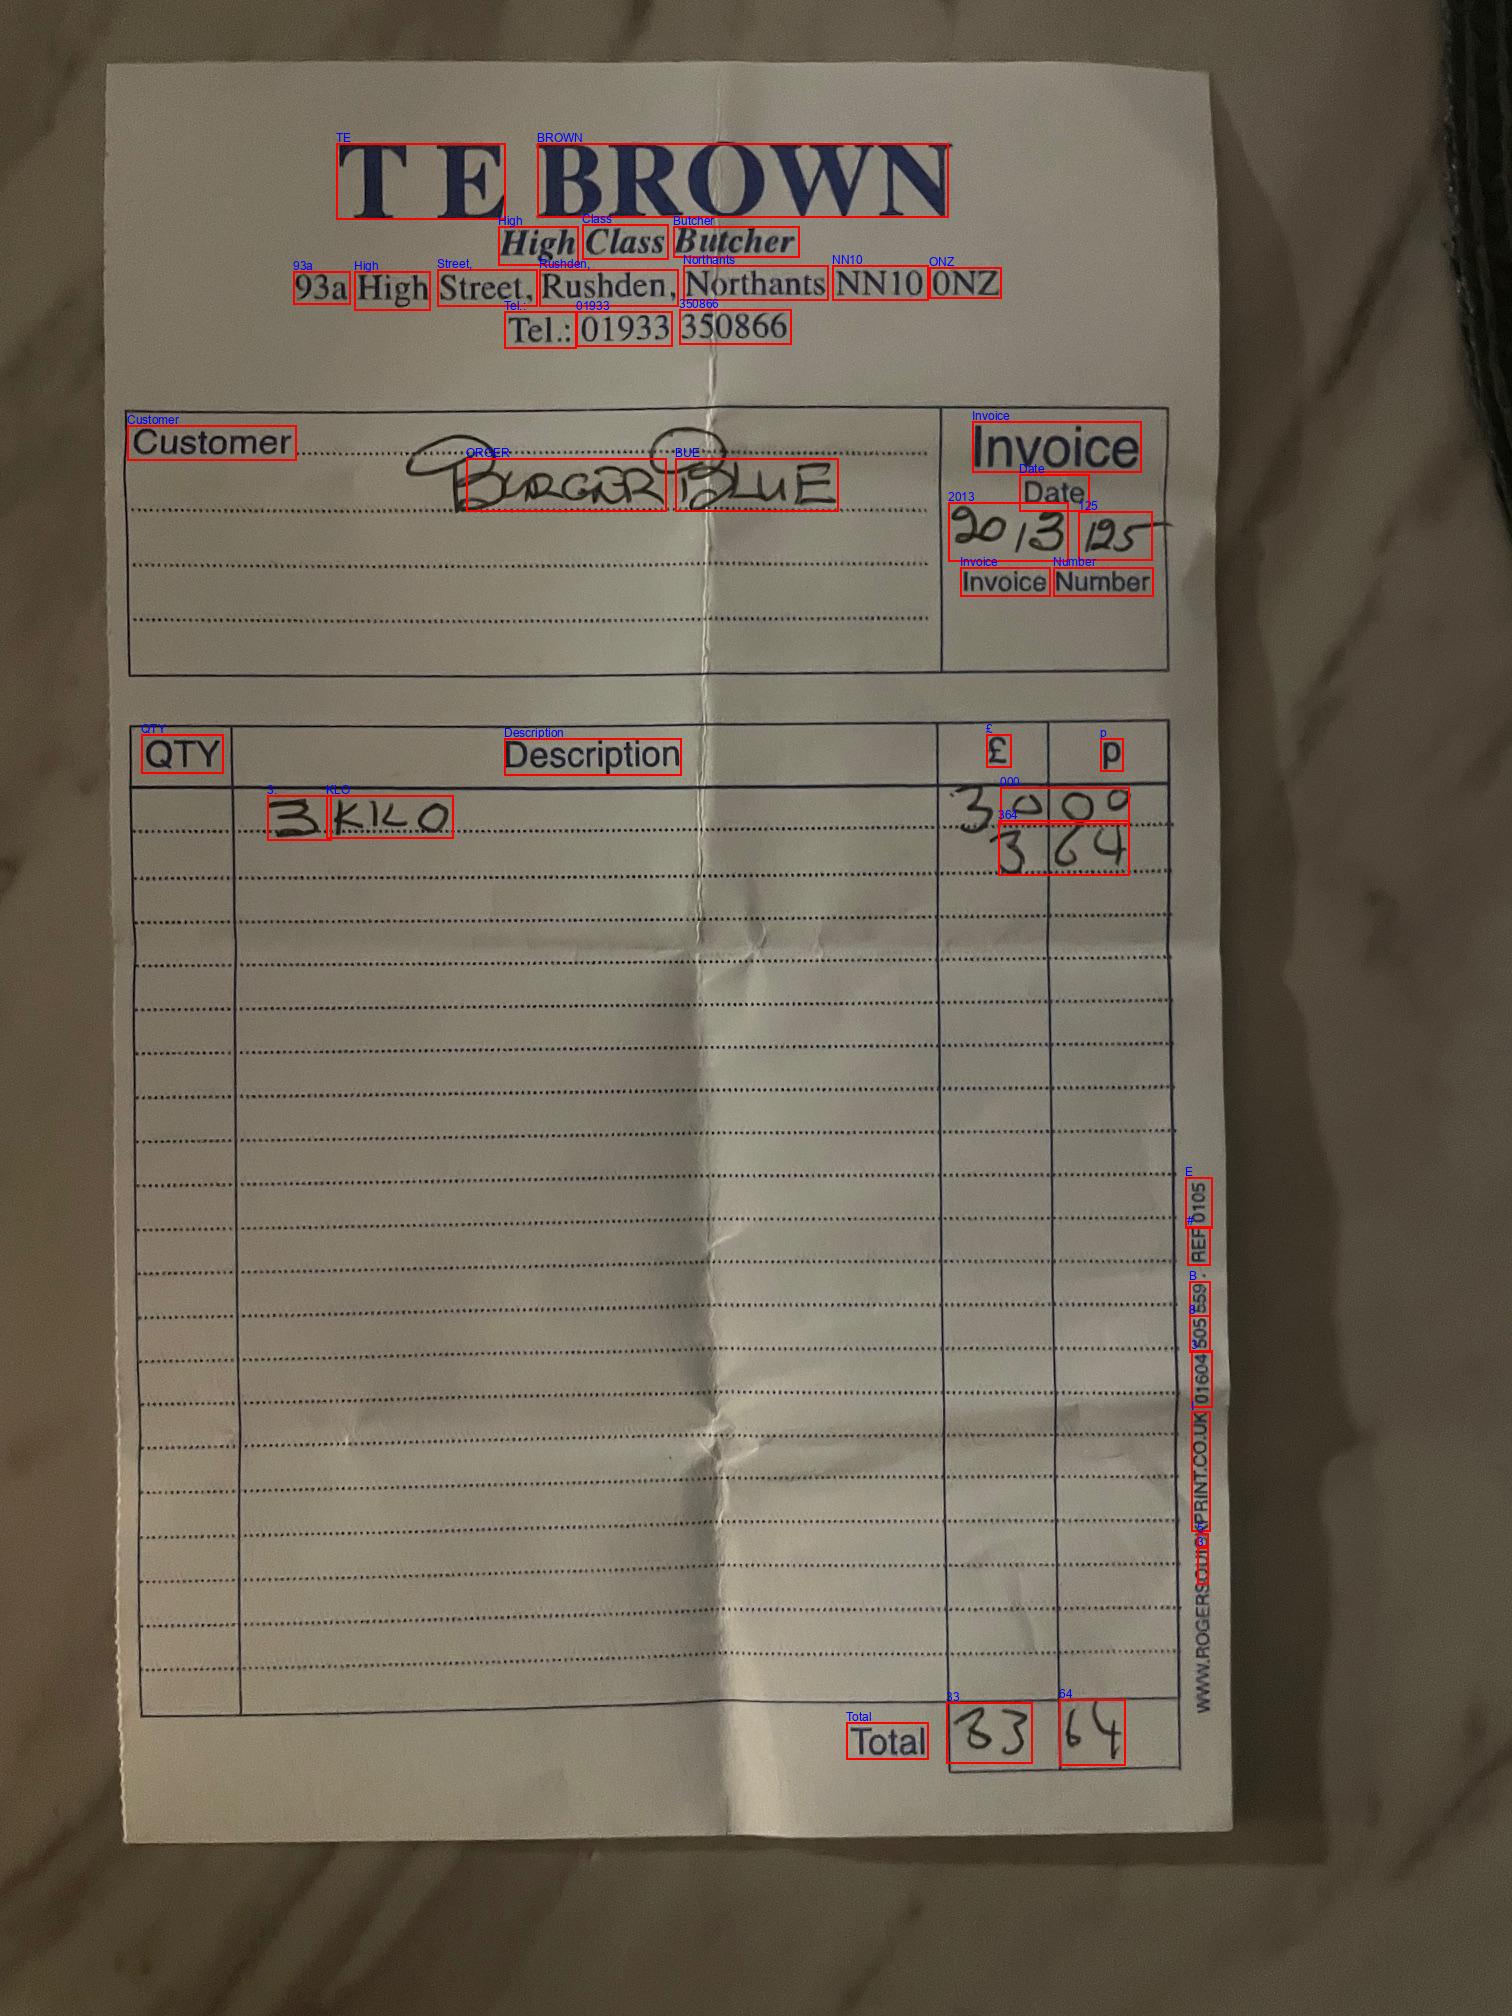 T E BROWN
High Class Butcher
93a High Street, Rushden, Northants NN10 0NZ
Tel.: 01933 350866
Customer
BURGER BLUE
Invoice
Date
20/3/25
Invoice Number
QTY Description £ p
3 KILO 30 00
3 64
Total 33 64
WWW.ROGERSQUICKPRINT.CO.UK 01604 505 559 . REF 0105